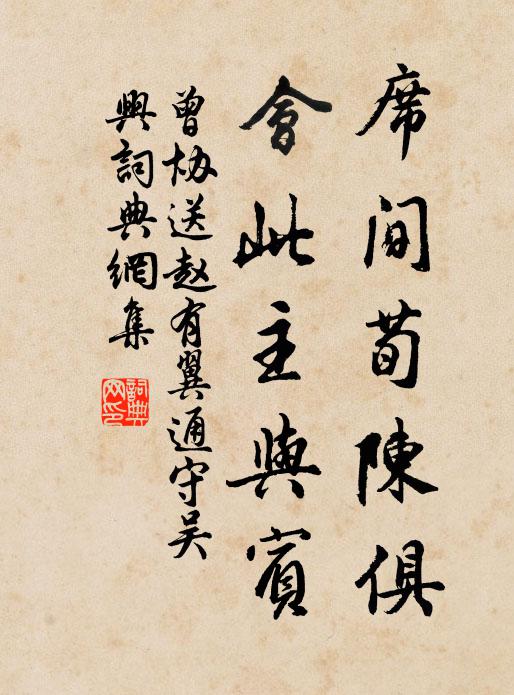 席間荀陳俱
會此主與賓
曾协送赵有翼通守吴
興詞典網集
詞典網印